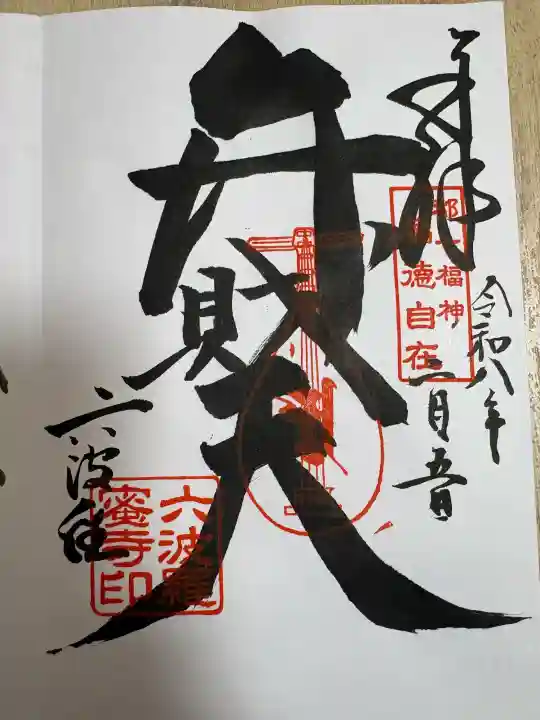 奉拝
都七福神
福德自在
令和八年
二月五日
弁財天
六波羅
六波羅
蜜寺印